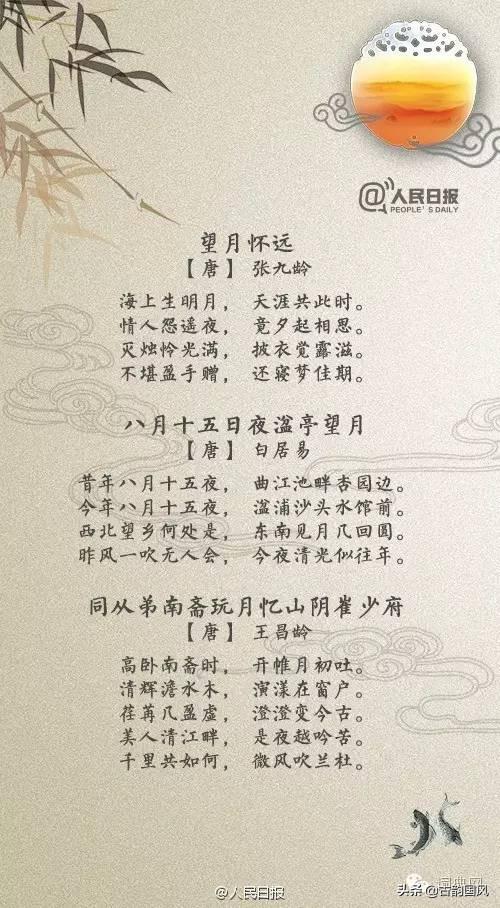 @人民日报
PEOPLE'S DAILY
望月怀远
【唐】 张九龄
海上生明月， 天涯共此时。
情人怨遥夜， 竟夕起相思。
灭烛怜光满， 披衣觉露滋。
不堪盈手赠， 还寝梦佳期。
八月十五日夜湓亭望月
【唐】 白居易
昔年八月十五夜， 曲江池畔杏园边。
今年八月十五夜， 湓浦沙头水馆前。
西北望乡何处是， 东南见月几回圆。
昨风一吹无人会， 今夜清光似往年。
同从弟南斋玩月忆山阴崔少府
【唐】 王昌龄
高卧南斋时， 开帷月初吐。
清辉澹水木， 演漾在窗户。
荏苒几盈虚， 澄澄变今古。
美人清江畔， 是夜越吟苦。
千里共如何， 微风吹兰杜。
词典网
@人民日报
头条@古韵国风